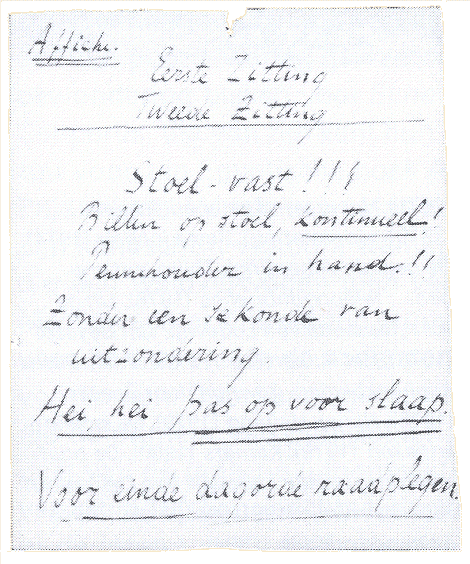 Affiche.
Eerste Zitting
Tweede Zitting
Stoel-vast!!!
Billen op stoel, kontinueel!
Pennhouder in hand!!
Zonder een sekonde van
uitzondering.
Hei, hei, pas op voor slaap.
Voor einde dagorde raadplegen.